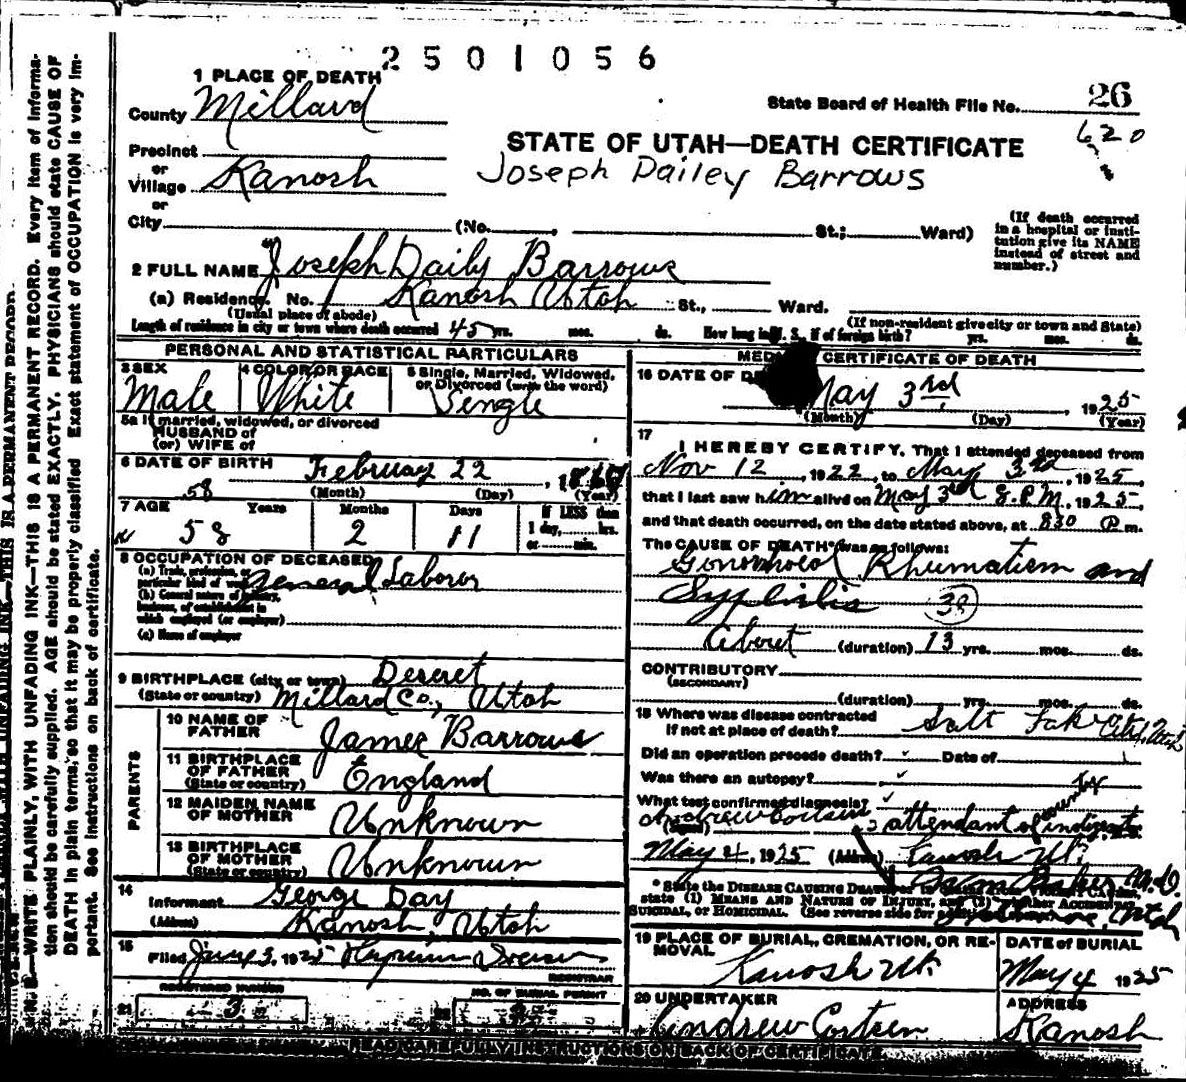 2501056
1 PLACE OF DEATH
County Millard
State Board of Health File No. 26
620
Precinct
or
Village Kanosh
or
City (No. , St.; Ward)
STATE OF UTAH—DEATH CERTIFICATE
Joseph Dailey Barrows
(If death occurred in a hospital or institution give its NAME instead of street and number.)
2 FULL NAME Joseph Daily Barrows
(a) Residence. No. Kanosh Utah St., Ward.
(Usual place of abode) (If non-resident give city or town and State)
Length of residence in city or town where death occurred 45 yrs. mos. ds. How long in U. S. if of foreign birth? yrs. mos. ds.
PERSONAL AND STATISTICAL PARTICULARS
3 SEX Male
4 COLOR OR RACE White
5 Single, Married, Widowed, or Divorced (write the word) Single
5a If married, widowed, or divorced
HUSBAND of
(or) WIFE of
6 DATE OF BIRTH February 22
(Month) (Day) (Year)
58
7 AGE Years Months Days If LESS than
58 2 11 1 day, hrs.
or min.
8 OCCUPATION OF DECEASED
(a) Trade, profession, or particular kind of work General Laborer
(b) General nature of industry, business, of establishment in which employed (or employer)
(c) Name of employer
9 BIRTHPLACE (city or town) Deseret
(State or country) Millard Co., Utah
PARENTS
10 NAME OF FATHER James Barrows
11 BIRTHPLACE OF FATHER (State or country) England
12 MAIDEN NAME OF MOTHER Unknown
13 BIRTHPLACE OF MOTHER (State or country) Unknown
14
Informant George Day
(Address) Kanosh, Utah
15
Filed June 3, 1925
REGISTRAR
REGISTERED NUMBER
21 3
NO. OF BURIAL PERMIT
MEDICAL CERTIFICATE OF DEATH
16 DATE OF DEATH May 3rd, 1925
(Month) (Day) (Year)
17
I HEREBY CERTIFY, That I attended deceased from
Nov 12, 1922, to May 3rd, 1925,
that I last saw him alive on May 3rd 8. P.M, 1925,
and that death occurred, on the date stated above, at 830 P m.
The CAUSE OF DEATH* was as follows:
Gonorrhoeal Rhumatism and
Syphilis (38)
About (duration) 13 yrs. mos. ds.
CONTRIBUTORY
(SECONDARY)
(duration) yrs. mos. ds.
18 Where was disease contracted
if not at place of death? Salt Lake City, Utah
Did an operation precede death? Date of
Was there an autopsy?
What test confirmed diagnosis?
(Signed) Andrew attendant of indigents
May 4, 1925 (Address) Kanosh Ut.
M.D.
Utah
* State the DISEASE CAUSING DEATH
state (1) MEANS AND NATURE OF INJURY, and (2) whether ACCIDENTAL,
SUICIDAL, or HOMICIDAL. (See reverse side for
19 PLACE OF BURIAL, CREMATION, OR REMOVAL Kanosh Ut.
DATE of BURIAL May 4 1925
20 UNDERTAKER Andrew
ADDRESS Kanosh
READ CAREFULLY INSTRUCTIONS ON BACK OF CERTIFICATE
N. B.—WRITE PLAINLY, WITH UNFADING INK—THIS IS A PERMANENT RECORD. Every item of information should be carefully supplied. AGE should be stated EXACTLY. PHYSICIANS should state CAUSE OF DEATH in plain terms, so that it may be properly classified. Exact statement of OCCUPATION is very important. See instructions on back of certificate.